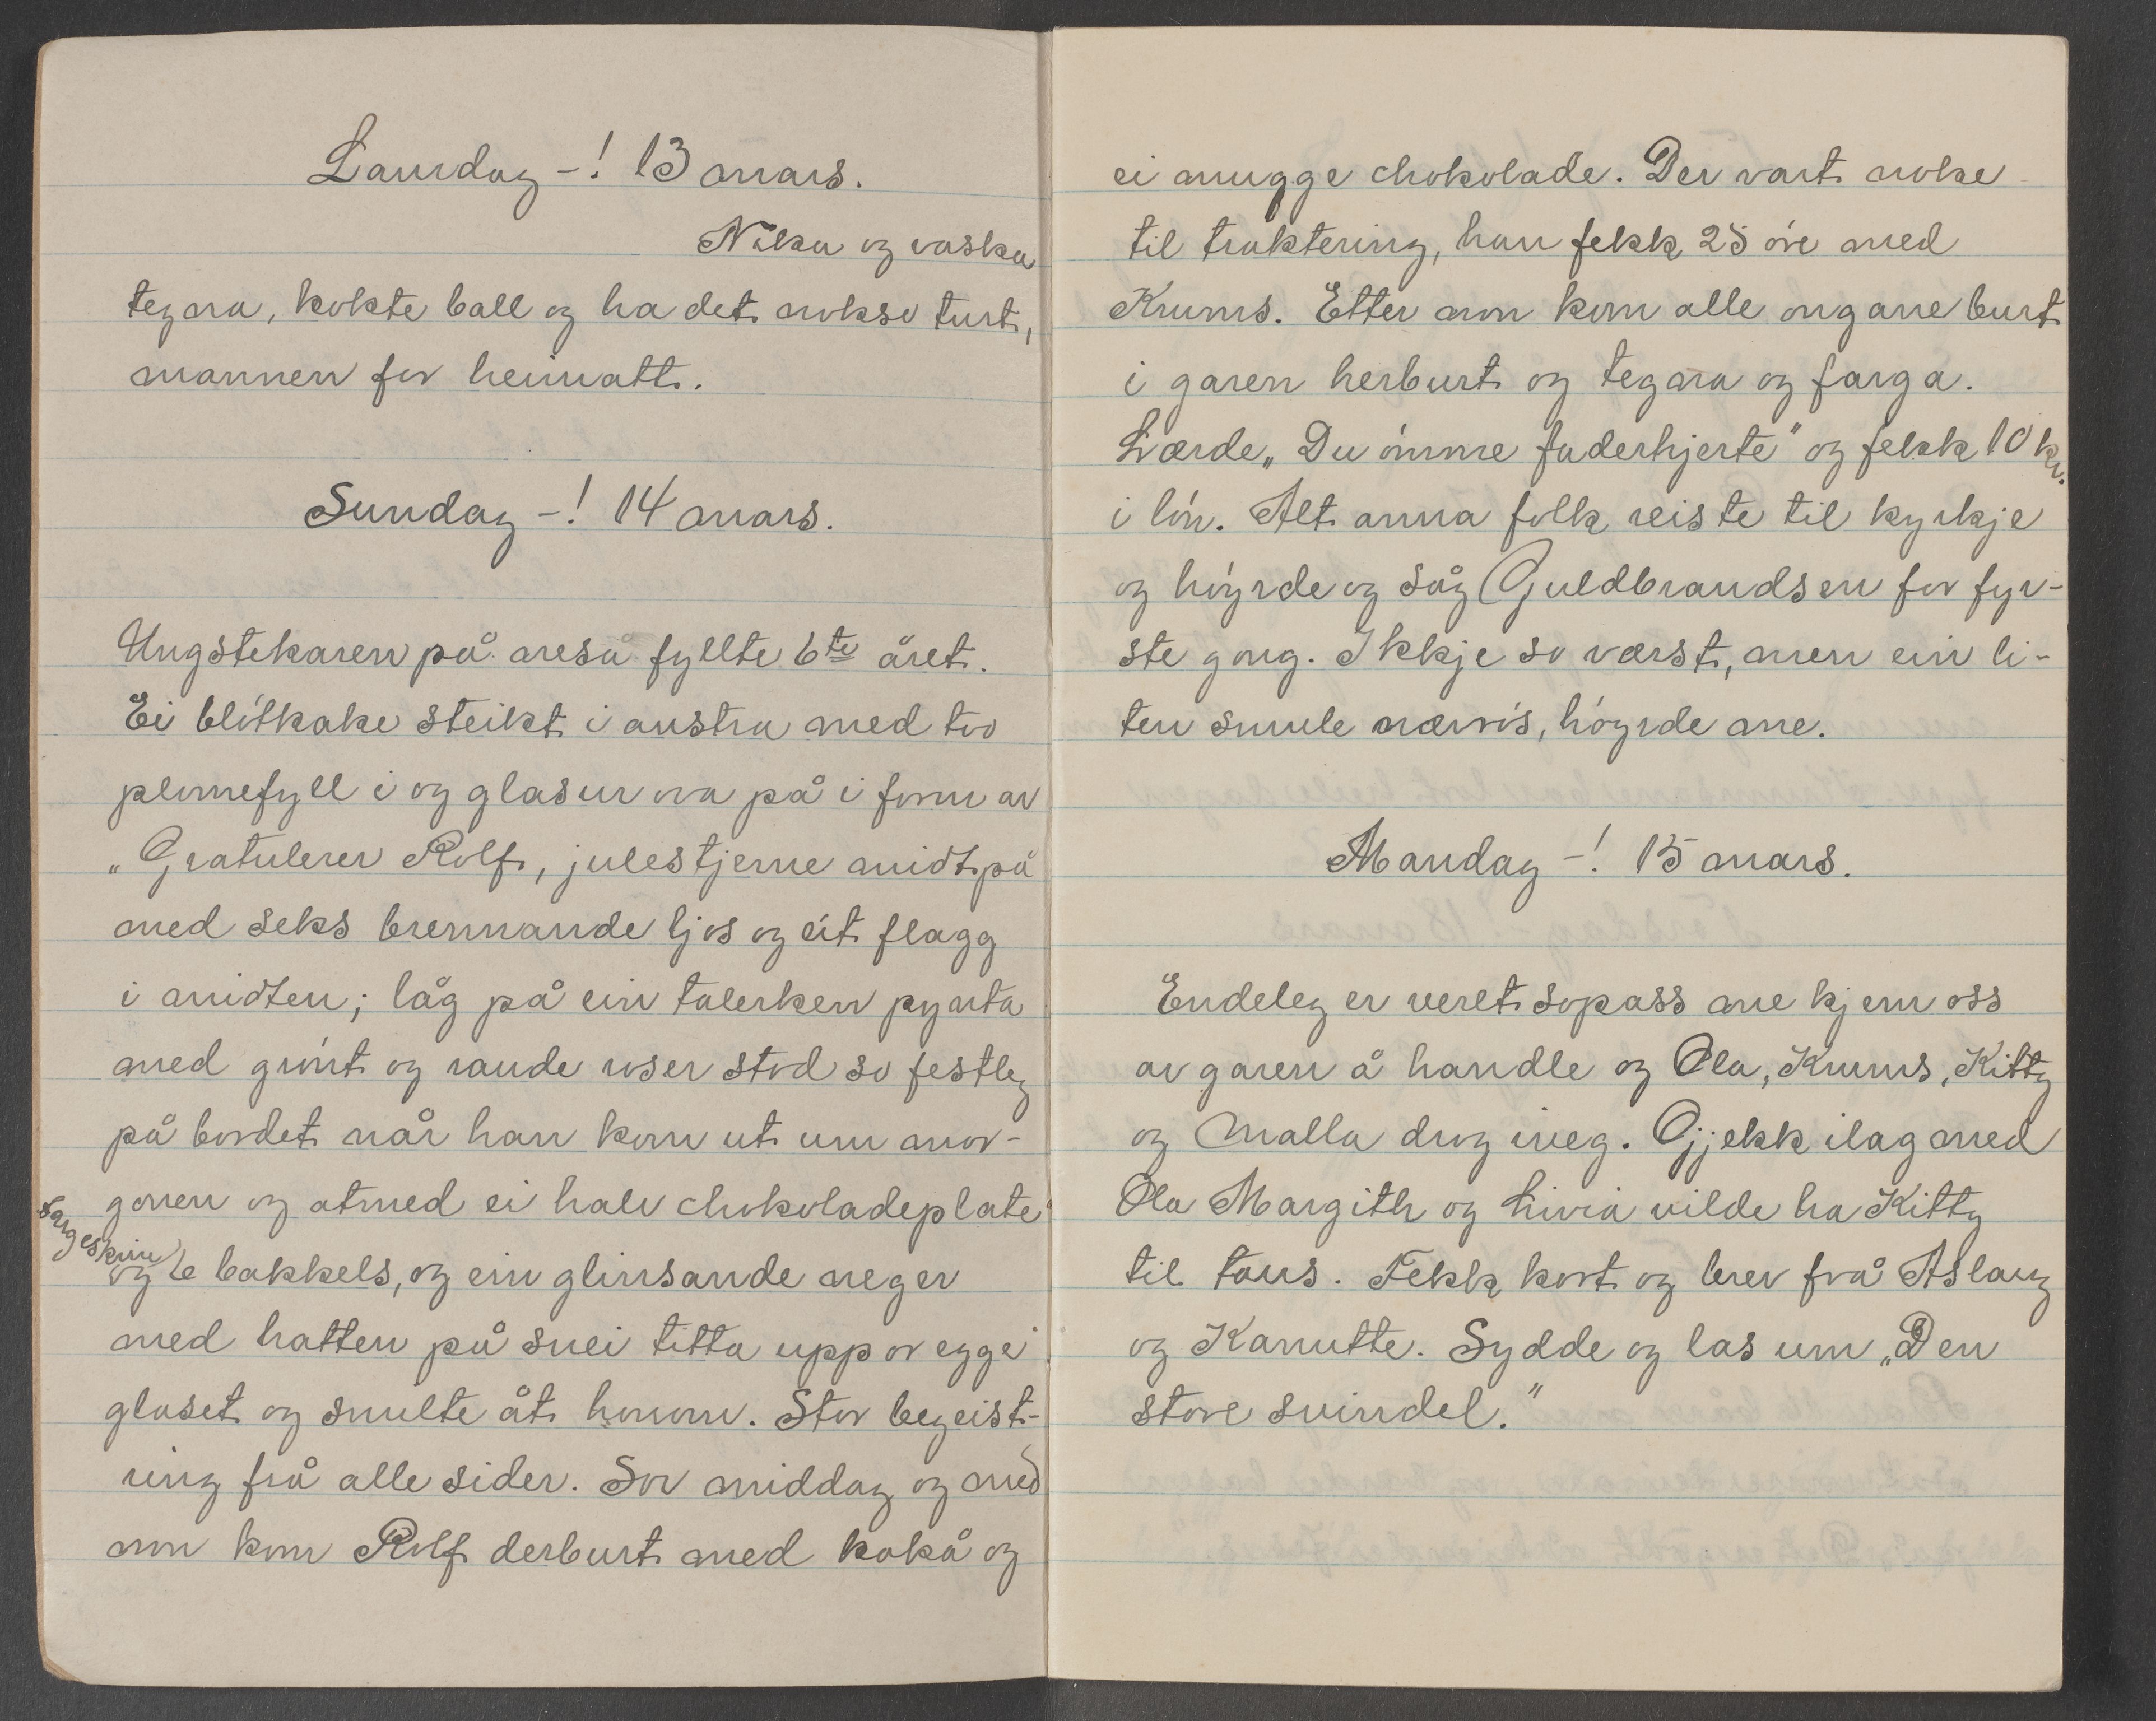 Laurdag -! 13 mars.
Nåka og vaska
tegna, kokte ball og ha det nokso turt,
mannen for heimatt.
Sundag -! 14 mars.
Ungstekaren på neså fyllte 6te året.
Ei blótkake steikt i austra med tvo
plomefyll i og glasur ova på i form av
„Gratulerer Rolf, julestjerne midtpå
med seks brennande ljos og eit flagg
i midten; låg på ein talerken pynta
med grónt og raude roser stod so festleg
på bordet når han kom ut um mor-
gonen og atmed ei halv chokoladeplate
fargeskrin
og 6 bakkels, og ein glinsande neger
med hatten på snei titta upp or egge
glaset og smilte åt honom. Stor begeist-
ring frå alle sider. Sov middag og med
mor kom Rolf derburt med kokå og
ei mugge chokolade. Der vart noke
til traktering, han fekk 25 óre med
Krums. Etter mor kom alle ongane burt
i garen herburt og tegna og farga.
Lærde „Du ómme faderhjerte" og fekk 10 kr.
i lón. Alt anna folk reiste til kyrkje
og hóyrde og såg Guldbrandsen for fyr-
ste gong. Ikkje so værst, men ein li-
ten smule nærvós, hóyrde me.
Mandag -! 15 mars.
Endeleg er veret sopass me kjem oss
av garen å handle og Ola, Krums, Kitty
og Malla drog iveg. Gjekk ilag med
Ola Margith og Livia vilde ha Kitty
til taus. Fekk kort og brev frå Aslaug
og Kanutte. Sydde og las um „Den
store svindel."